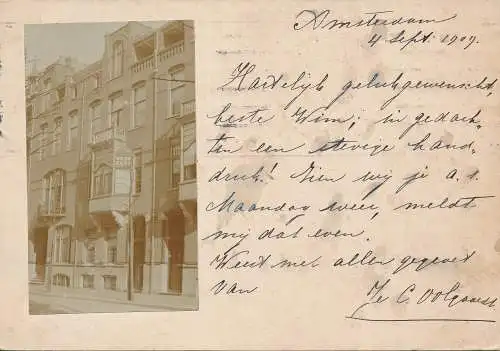 Amsterdam
4 Sept. 1909.
Hartelijk gelukgewenscht,
beste Wim; in gedach-
ten een stevige hand-
druk! Zien wij je a.s.
Maandag weer, meldt
mij dat even.
Weest met allen gegroet
van Je C.